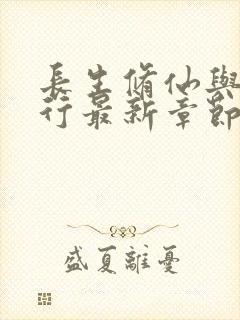 長生脩仙與
行最新章節
盛夏離憂